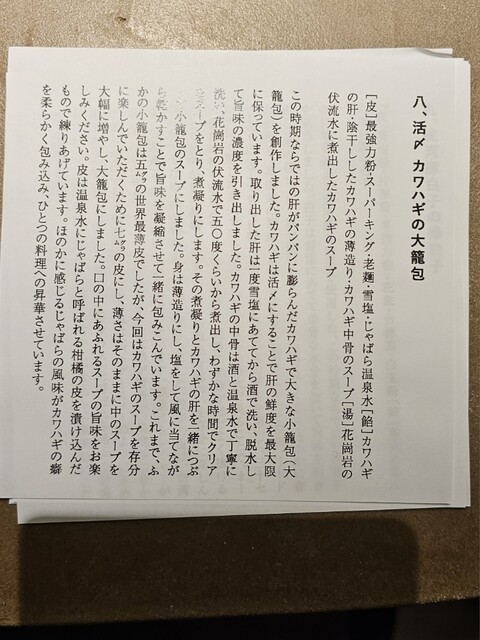 八、活〆 カワハギの大籠包
［皮］最強力粉スーパーキング・老麵・雪塩・じゃばら温泉水［餡］カワハギ
の肝・陰干ししたカワハギの薄造り・カワハギ中骨のスープ［湯］花崗岩の
伏流水に煮出したカワハギのスープ
この時期ならではの肝がパンパンに膨らんだカワハギで大きな小籠包（大
籠包）を創作しました。カワハギは活〆にすることで肝の鮮度を最大限
に保っています。取り出した肝は一度雪塩にあててから酒で洗い、脱水し
て旨味の濃度を引き出しました。カワハギの中骨は酒と温泉水で丁寧に
洗い、花崗岩の伏流水で五〇度くらいから煮出し、わずかな時間でクリア
なスープをとり、煮凝りにします。その煮凝りとカワハギの肝を一緒につぶ
小籠包のスープにしました。身は薄造りにし、塩をして風に当てなが
ら乾かすことで旨味を凝縮させて一緒に包みこんでいます。これまで、ふ
かの小籠包は五㌘の世界最薄皮でしたが、今回はカワハギのスープを存分
に楽しんでいただくために七㌘の皮にし、薄さはそのままに中のスープを
大幅に増やし、大籠包にしました。口の中にあふれるスープの旨味をお楽
しみください。皮は温泉水にじゃばらと呼ばれる柑橘の皮を漬け込んだ
もので練りあげています。ほのかに感じるじゃばらの風味がカワハギの癖
を柔らかく包み込み、ひとつの料理への昇華させています。